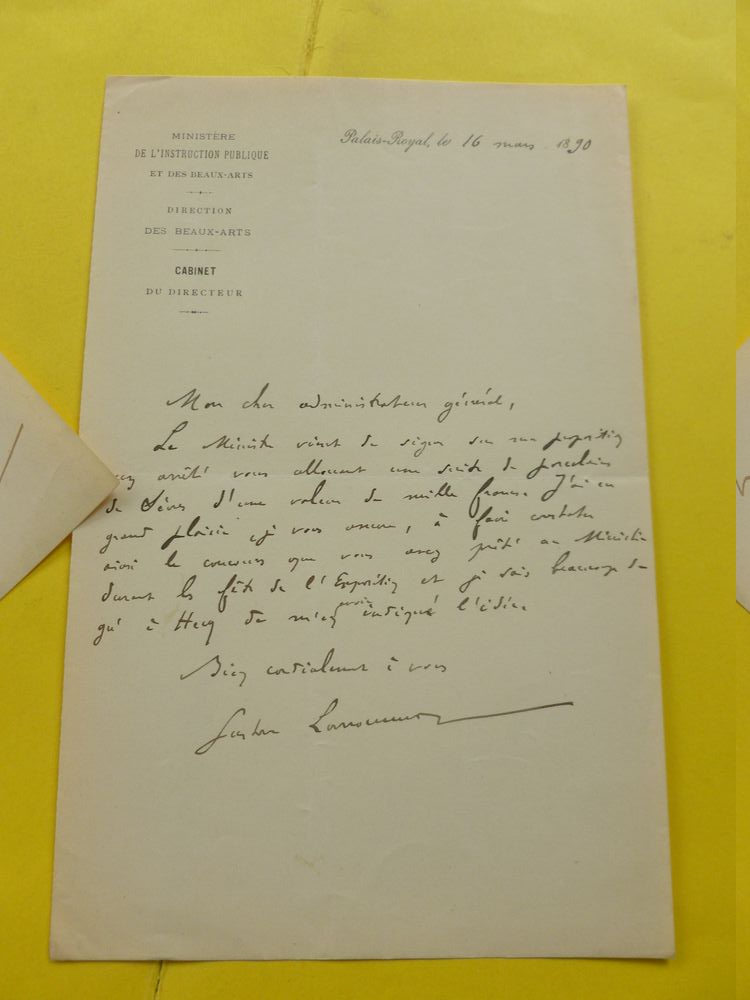 MINISTÈRE
DE L'INSTRUCTION PUBLIQUE
ET DES BEAUX-ARTS
DIRECTION
DES BEAUX-ARTS
CABINET
DU DIRECTEUR
Palais-Royal, le 16 mars 1890
Mon cher administrateur général,
Le Ministre vient de signer sur ma proposition
un arrêté vous allouant une série de porcelaines
de Sèvres d'une valeur de mille francs. J'ai eu
grand plaisir, je vous assure, à faire constater
ainsi le concours que vous avez prêté au Ministre
durant les fêtes de l'Exposition et je sais beaucoup de
gré à Hecq de m'en avoir indiqué l'idée.
Bien cordialement à vous
Gustave Larroumet